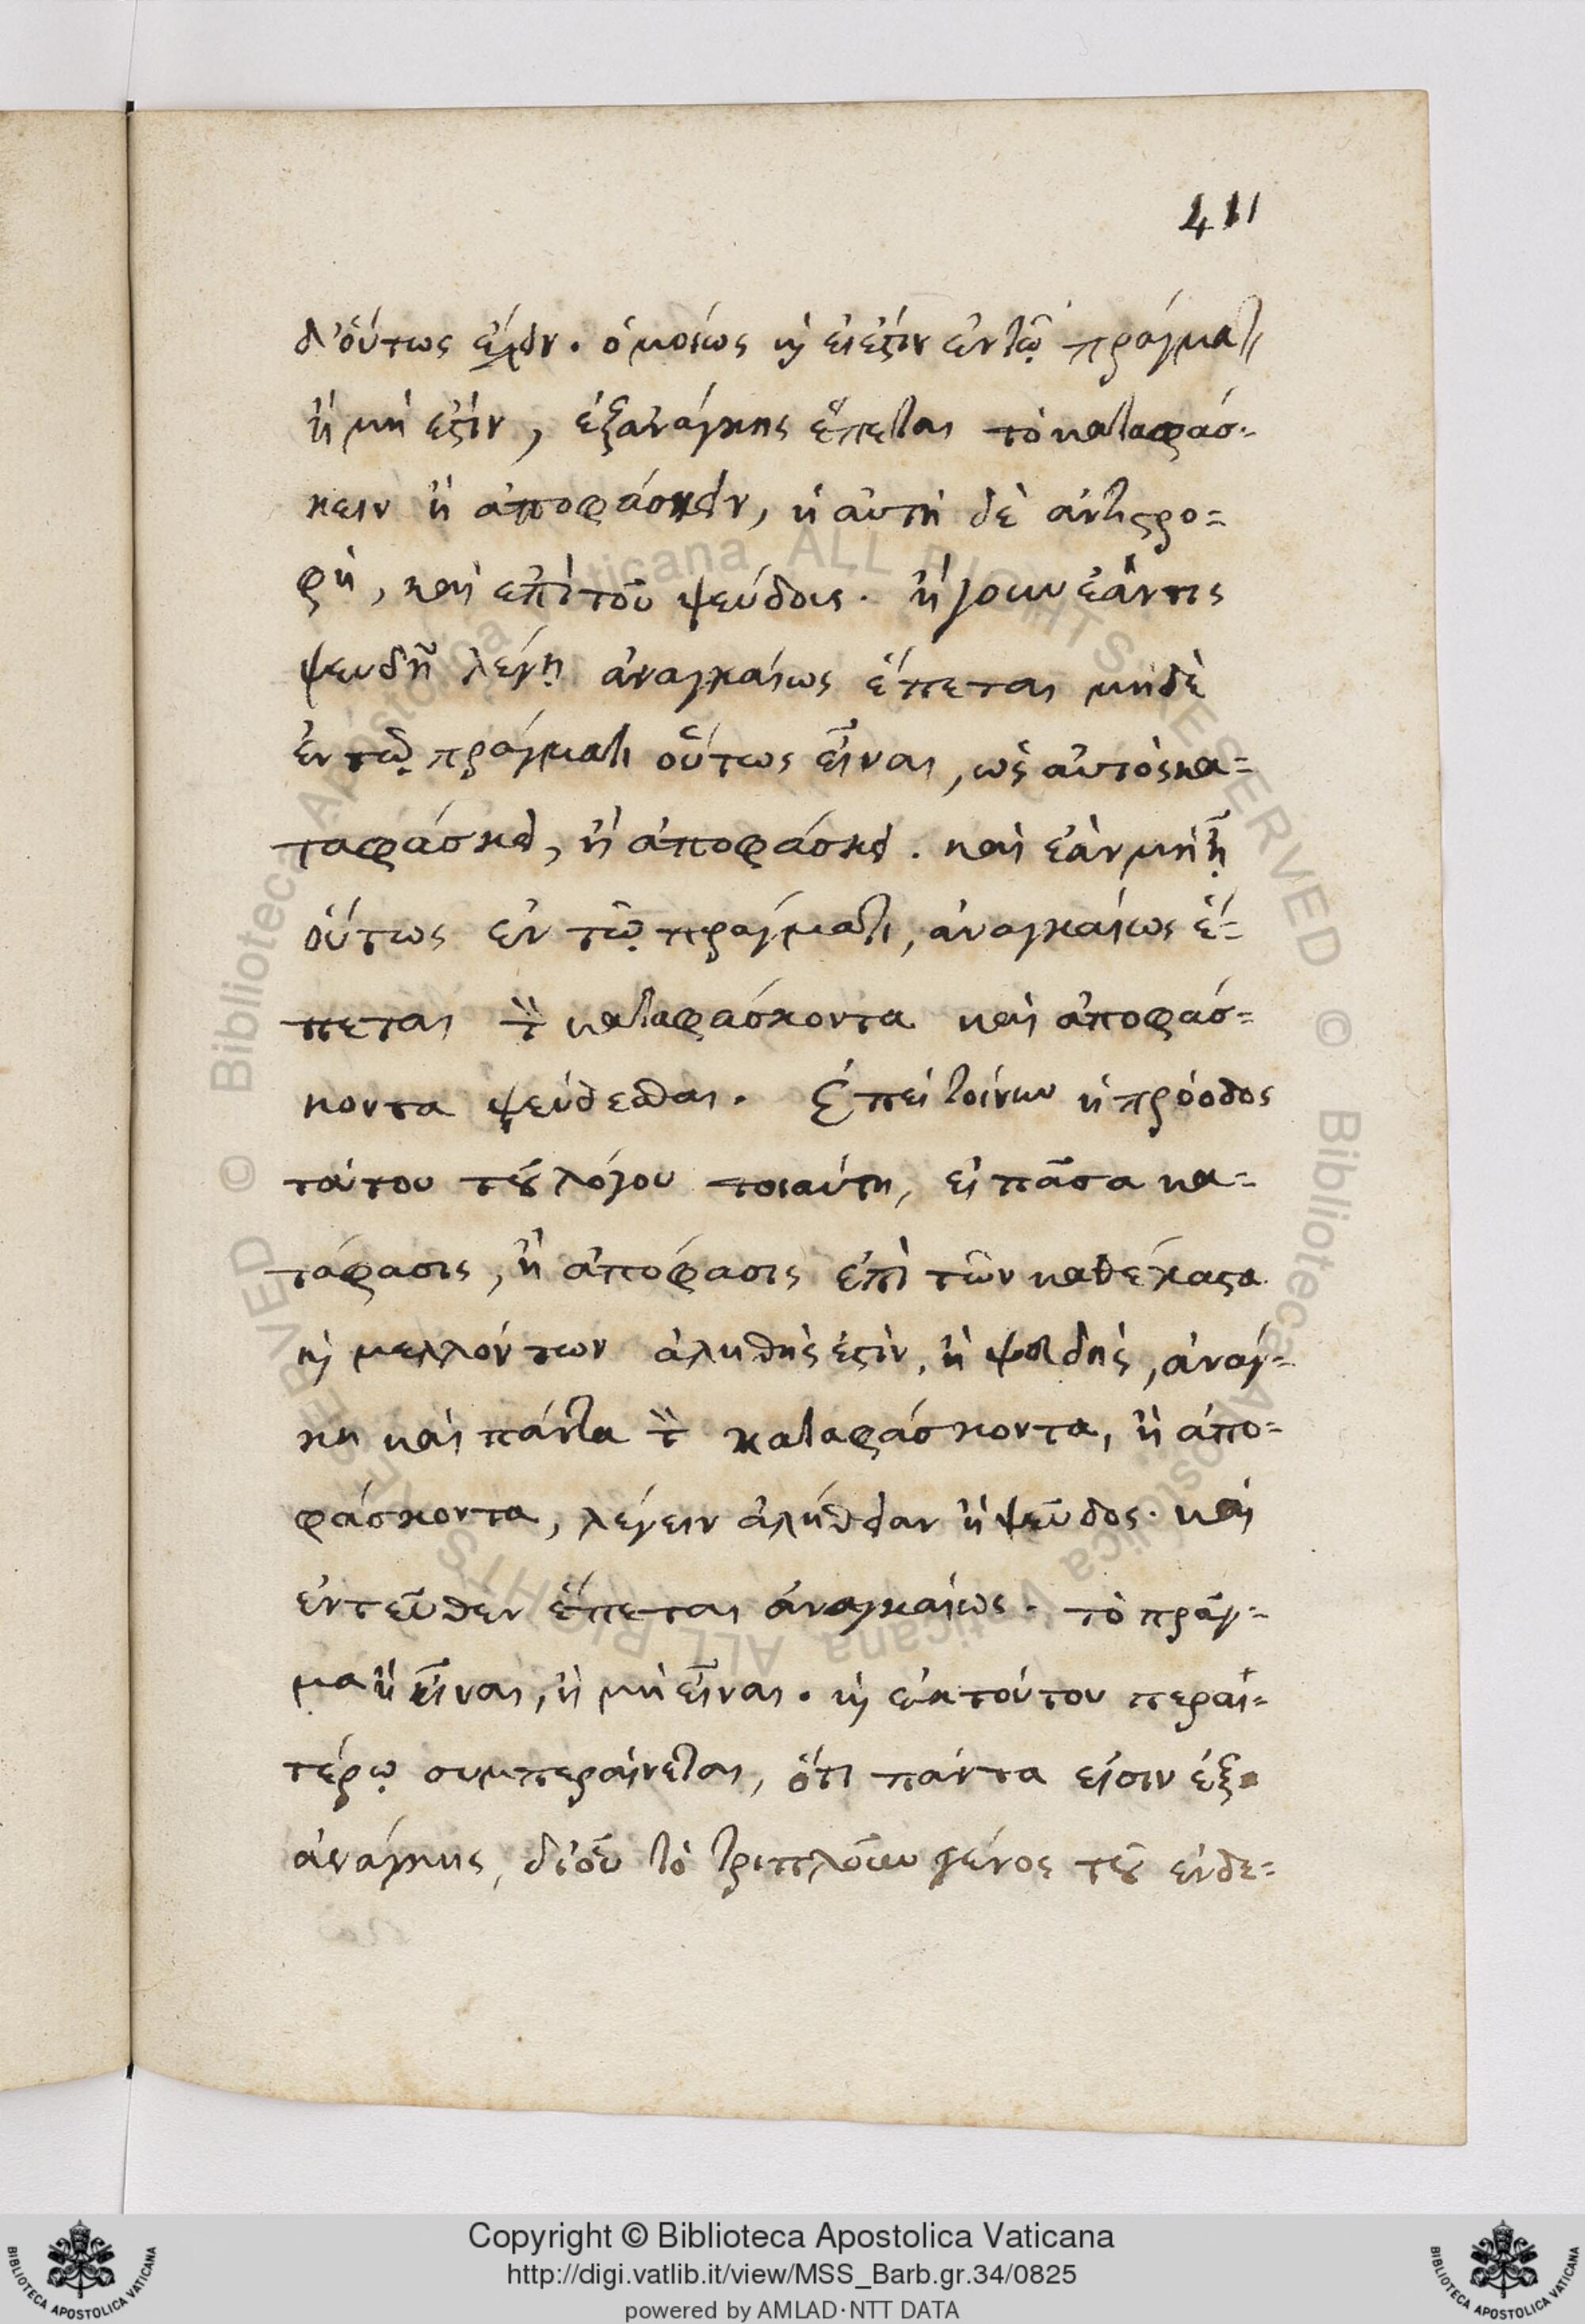 411
δ' οὕτως ἔχειν. ὁμοίως καὶ εἰ ἐστὶν ἐν τῷ πράγματι
ἢ μὴ ἐστίν, ἐξ ἀνάγκης ἕπεται τὸ καταφάσ-
κειν ἢ ἀποφάσκειν, ἡ αὐτὴ δὲ ἀντιστρο-
φὴ, καὶ ἐπὶ τοῦ ψεύδους. ἤγουν ἐάν τις
ψευδῆ λέγῃ ἀναγκαίως ἕπεται μηδὲ
ἐν τῷ πράγματι οὕτως εἶναι, ὡς αὐτὸς κα-
ταφάσκει, ἢ ἀποφάσκει. καὶ ἐὰν μὴ ᾖ
οὕτως ἐν τῷ πράγματι, ἀναγκαίως ἕ-
πεται τὸν καταφάσκοντα καὶ ἀποφάσ-
κοντα ψεύδεσθαι. Ἐπεὶ τοίνυν ἡ πρόοδος
τούτου τοῦ λόγου τοιαύτη, εἰ πᾶσα κα-
τάφασις, ἢ ἀπόφασις ἐπὶ τῶν καθέκαστα
καὶ μελλόντων ἀληθής ἐστὶν, ἢ ψευδής, ἀνάγ-
κη καὶ πάντα τὸν καταφάσκοντα, ἢ ἀπο-
φάσκοντα, λέγειν ἀλήθειαν ἢ ψεῦδος. καὶ
ἐντεῦθεν ἕπεται ἀναγκαίως. τὸ πρᾶγ-
μα ἢ εἶναι, ἢ μὴ εἶναι. καὶ ἐκ τούτου περαι-
τέρῳ συμπεραίνεται, ὅτι πάντα εἰσιν ἐξ
ἀνάγκης, δι' οὗ τὸ τριπλοῦν γένος τοῦ ἐνδε-
Copyright © Biblioteca Apostolica Vaticana
http://digi.vatlib.it/view/MSS_Barb.gr.34/0825
powered by AMLAD·NTT DATA